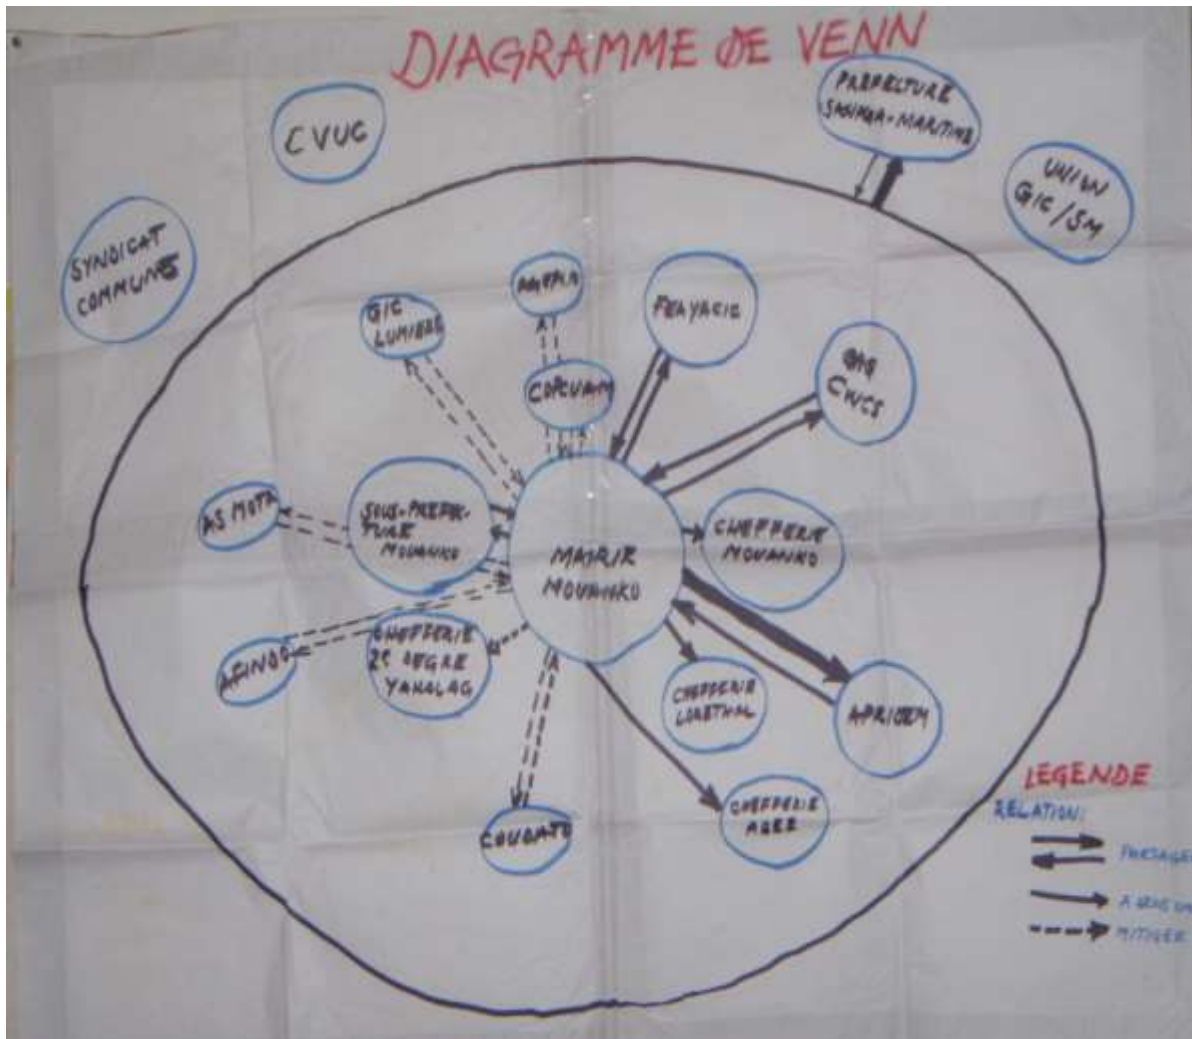 DIAGRAMME DE VENN
CVUC
PREFECTURE
SANAGA-MARITIME
UNION
GIC/SM
SYNDICAT
COMMUNES
GIC
LUMIERE
FENYACIC
COPCUAM
AS MOTR
SOUS-PREFEC-
TURE
MOUANKO
MAIRIR
MOUANKO
CHEFFERIE
MOUANKO
CHEFFERIE
2e DEGRE
YAKALAG
CHEFFERIE
APRIOEM
COUDATO
CHEFFERIE
LEGENDE
RELATION:
MITIGER